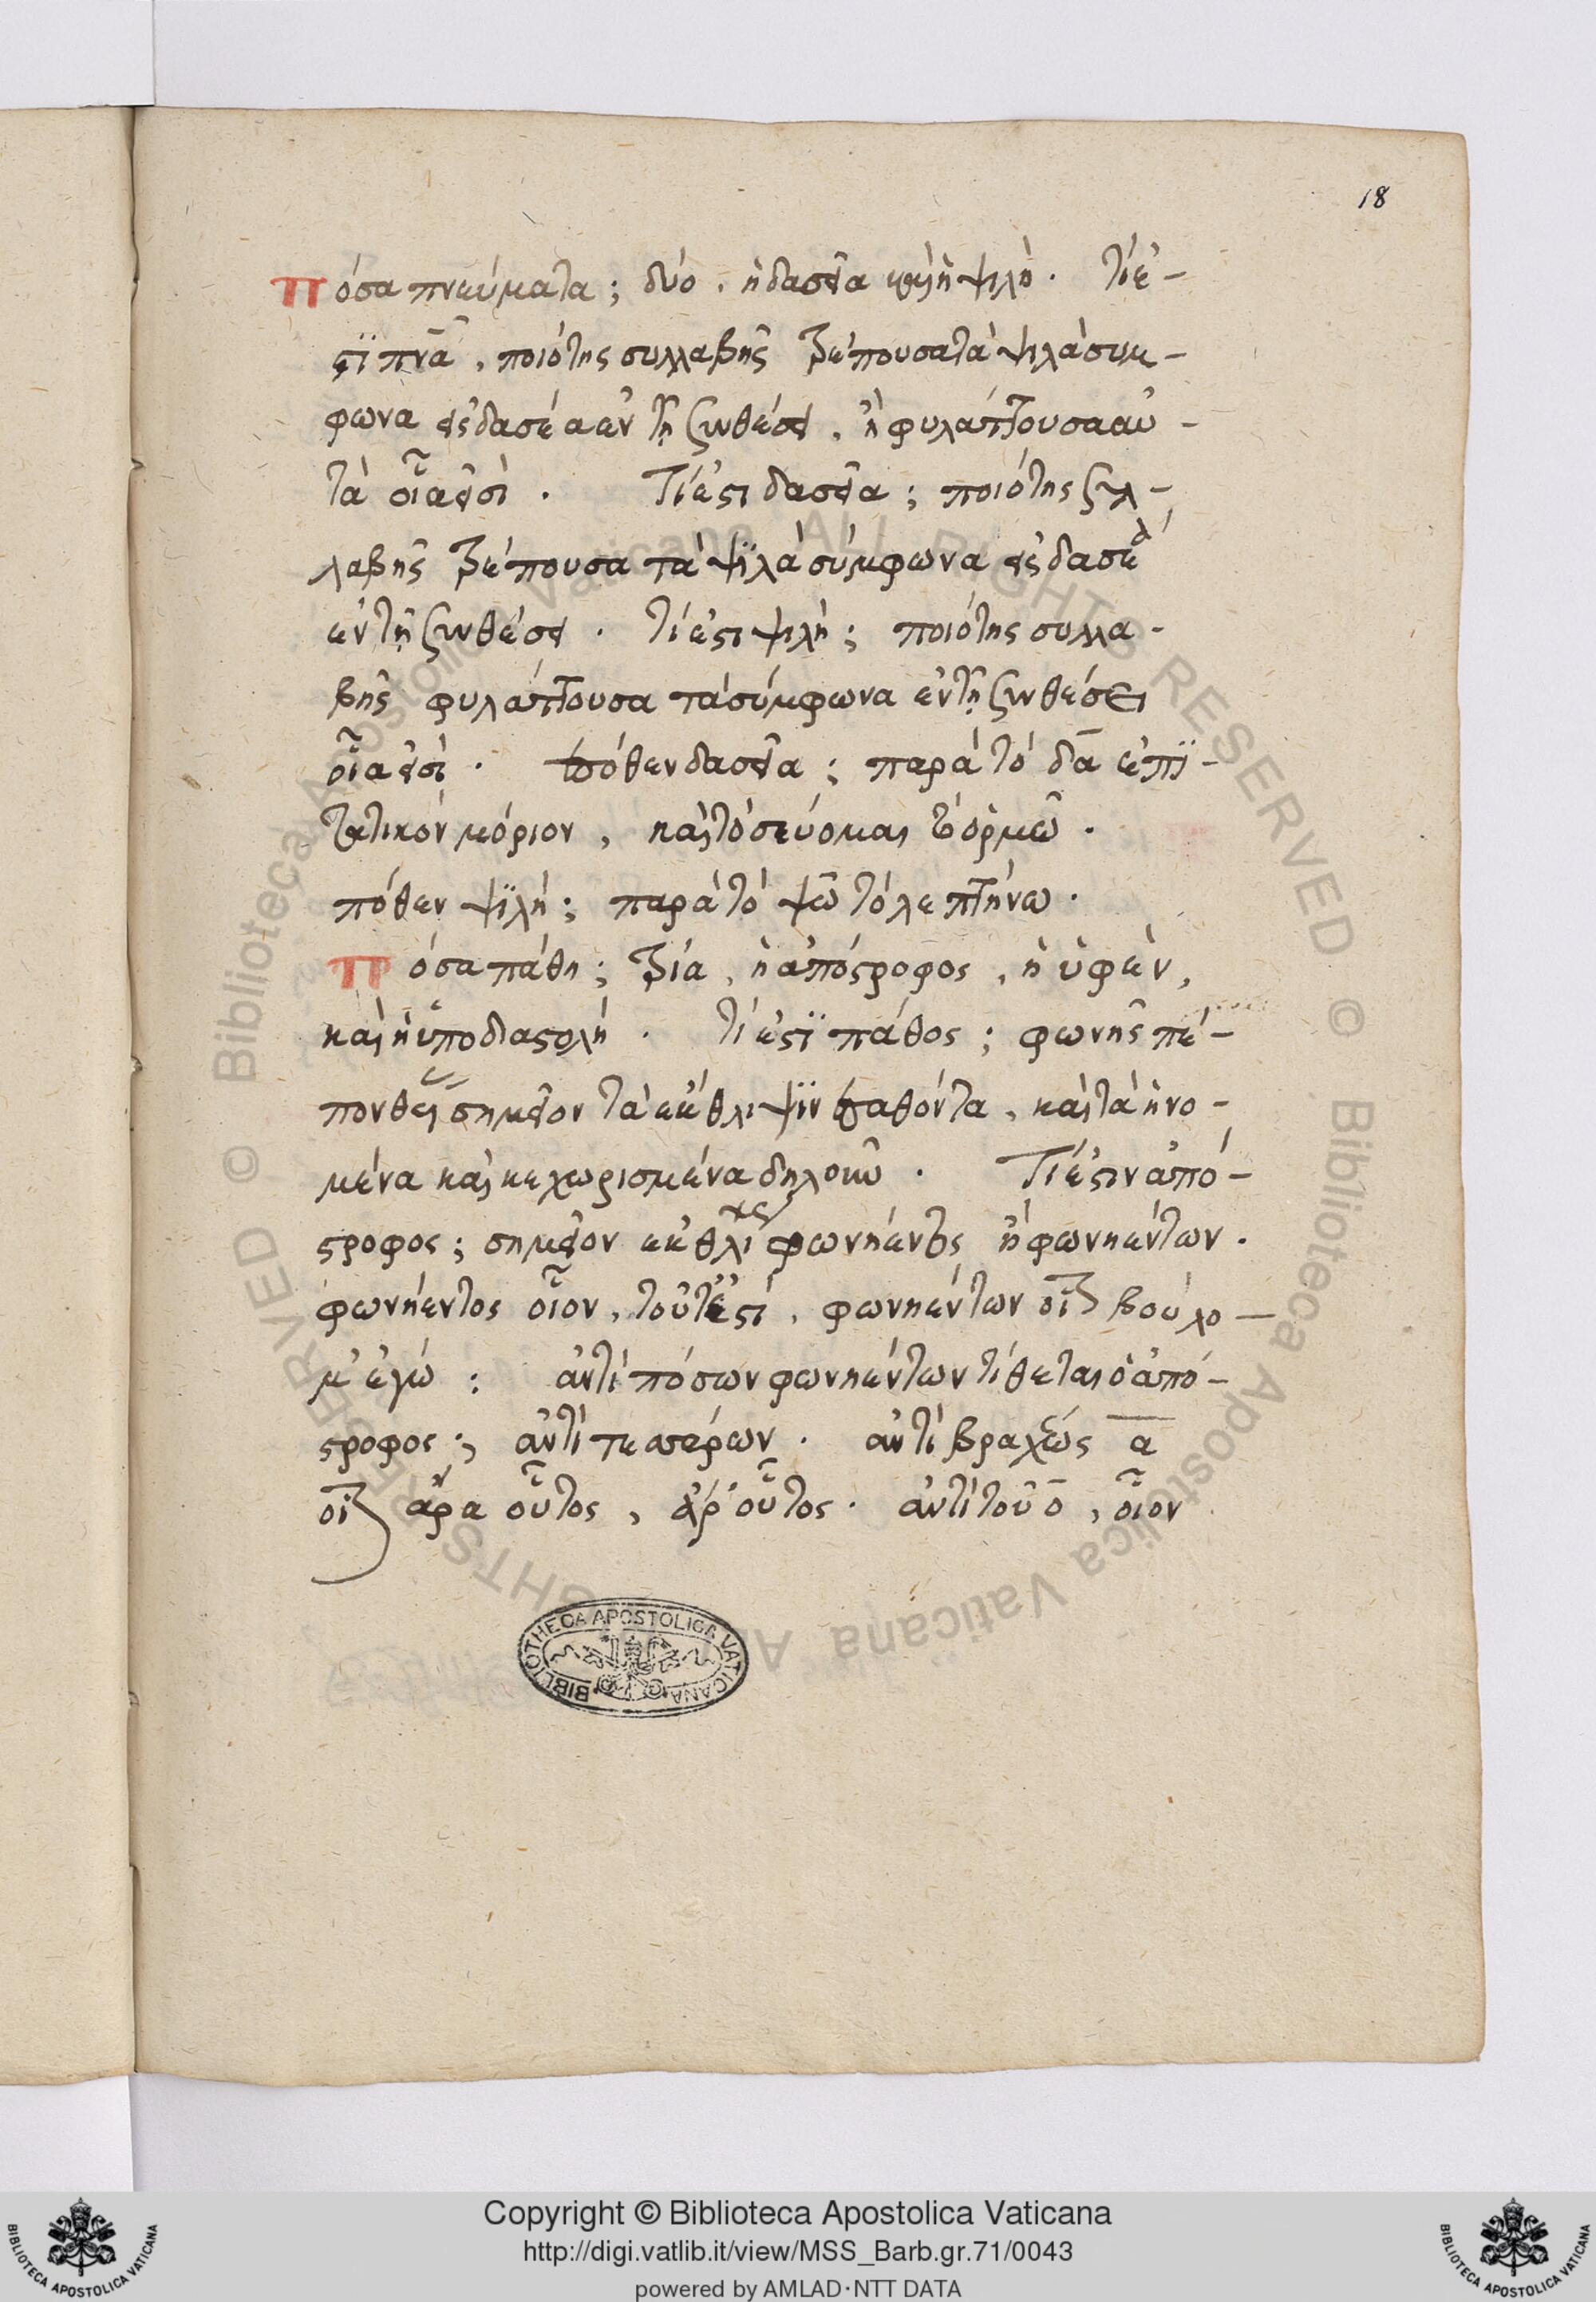 18
Πόσα πνεύματα; δύο, ἡ δασεῖα καὶ ἡ ψιλὴ. τί ἐ-
στϊ πνᾶ, ποιότης συλλαβῆς τρέπουσα τὰ ψιλὰ συμ-
φωνα εἰς δασέα ἐν τῇ συνθέσει, ἢ φυλάττουσα αὐ-
τὰ οἷα εἰσὶ. Τί ἐστι δασεῖα; ποιότης συλ-
λαβῆς τρέπουσα τὰ ψϊλὰ σύμφωνα εἰς δασέα
ἐν τῇ συνθέσει. τί ἐστι ψιλὴ; ποιότης συλλα-
βῆς φυλάττουσα τὰ σύμφωνα ἐν τῇ συνθέσει
οἷα εἰσὶ. πόθεν δασεῖα; παρὰ τὸ δᾱ ἐπϊ-
τατικὸν μόριον, καὶ τὸ σεύομαι τὸ ὁρμῶ.
πόθεν ψϊλή; παρὰ τὸ ψῶ τὸ λεπτήνω.
Πόσα πάθη; τρία, ἡ ἀπόστροφος, ἡ ὑφὲν,
καὶ ἡ ὑποδιαστολή. τί ἐστϊ πάθος; φωνῆς πέ-
πονθεῖ σημεῖον τὰ ἔκθλιψϊν παθόντα, καὶ τὰ ἡνο-
μένα καὶ κεχωρισμένα δηλοῦν. Τί ἐστιν ἀπό-
στροφος; σημεῖον ἐκθλί φωνήεντος ἢ φωνηέντων.
φωνήεντος οἷον, τοῦτ ἔστι, φωνηέντων οἷον βούλο-
μ' ἐγώ: ἀντὶ πόσων φωνηέντων τίθεται ὁ ἀπό-
στροφος; ἀντὶ τεσσάρων. ἀντὶ βραχέως α
οἷον ἄρα οὗτος, ἀρ' οὗτος. ἀντὶ τοῦ ο̄, οἷον
BIBLIOTHECA APOSTOLICA VATICANA
© Biblioteca Apostolica Vaticana ALL RIGHTS RESERVED © Biblioteca Apostolica Vaticana ALL RIGHTS RESERVED
Copyright © Biblioteca Apostolica Vaticana
http://digi.vatlib.it/view/MSS_Barb.gr.71/0043
powered by AMLAD·NTT DATA
BIBLIOTECA APOSTOLICA VATICANA
BIBLIOTECA APOSTOLICA VATICANA